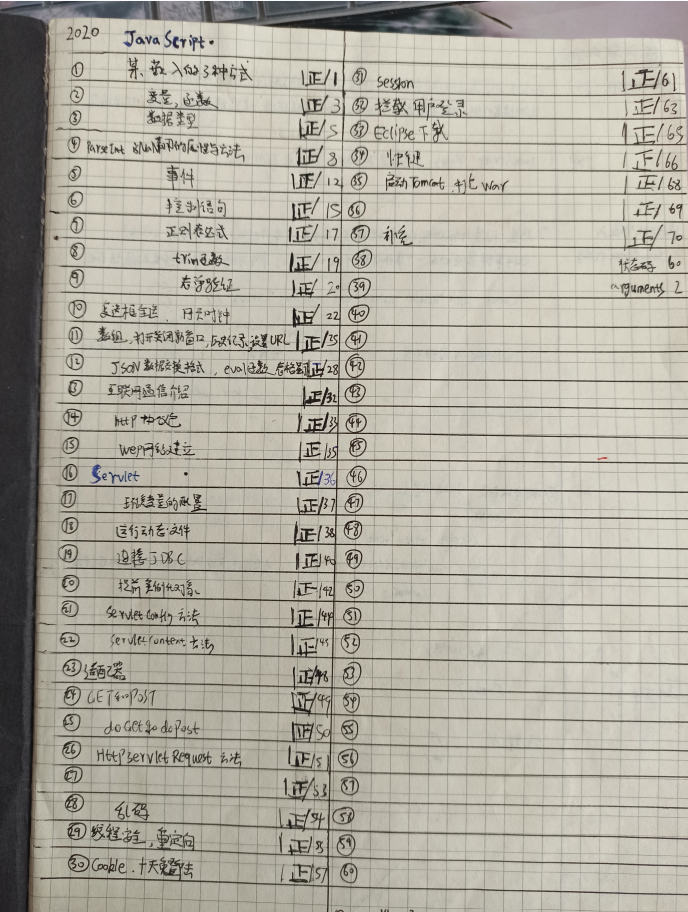 2020 JavaScript.
① 嵌入的3种方式 |正/1
② 变量,函数 |正/3
③ 数据类型 |正/5
④ ParseInt isNaN 的属性与方法 |正/8
⑤ 事件 |正/12
⑥ 控制语句 |正/15
⑦ 正则表达式 |正/17
⑧ trim函数 |正/19
⑨ 表单验证 |正/20
⑩ 复选框全选,网页时钟 |正/22
⑪ 数组,打开关闭新窗口,历史记录,设置URL |正/25
⑫ JSON 数据交换格式,eval函数 |正/28
⑬ 互联网通信介绍 |正/32
⑭ http 协议包 |正/33
⑮ wep网站建立 |正/35
⑯ Servlet |正/36
⑰ 环境变量的配置 |正/37
⑱ 运行动态文件 |正/38
⑲ 连接JDBC |正/40
⑳ 提前实例化对象 |正/42
㉑ ServletConfig 方法 |正/44
㉒ ServletContext 方法 |正/45
㉓ 适配器 |正/48
㉔ GET和POST |正/49
㉕ doGet和doPost |正/50
㉖ HttpServletRequest 方法 |正/51
㉗ |正/53
㉘ 乱码 |正/54
㉙ 线程安全,重定向 |正/55
㉚ Cookie.十天免登录 |正/57
㉛ session |正/61
㉜ 拦截用户登录 |正/63
㉝ Eclipse下载 |正/65
㉞ 快捷 |正/66
㉟ 启动Tomcat,打包war |正/68
㊱ |正/69
㊲ 补充 |正/70
㊳ 状态码 60
㊴ arguments 2
㊵
㊶
㊷
㊸
㊹
㊺
㊻
㊼
㊽
㊾
㊿
51
52
53
54
55
56
57
58
59
60